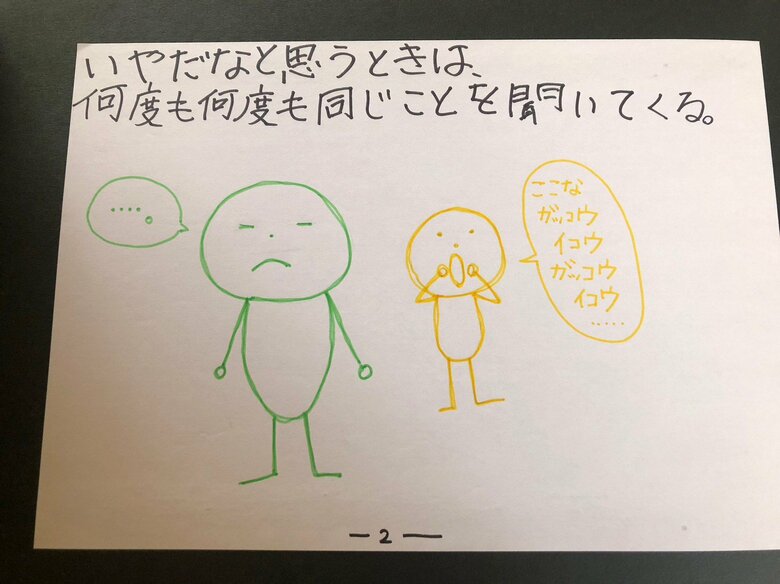 いやだなと思うときは、
何度も何度も同じことを聞いてくる。
・・・・。
ここな
ガッコウ
イコウ
ガッコウ
イコウ
・・・・・
－2－